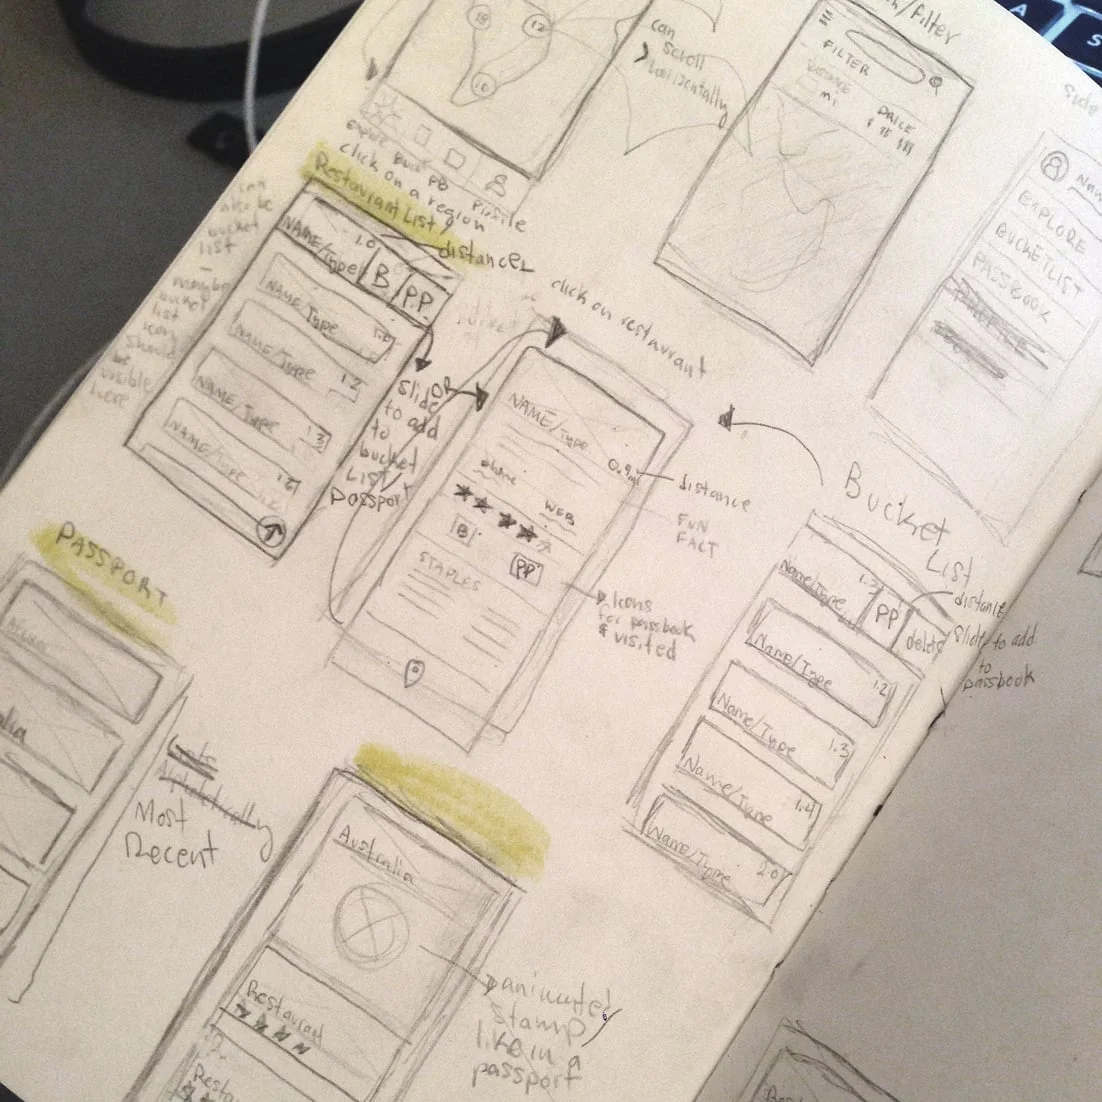 18
12
10
can
scroll
horizontally
/filter
FILTER
DISTANCE
mi
PRICE
$ $$ $$$
Side
A
S
EXPLORE
BUCKETLIST
PASSBOOK
Profile
click on a region
Restaurant List
distance
can
also be
bucket
list
maybe
bucket
list
icon
should
be
visible
here
NAME/Type
1.0
B
PP
NAME/Type
NAME/Type
1.2
NAME/Type
1.3
NAME/Type
slide
to add
to
bucket
LIST/
passport
OR
click on restaurant
NAME/Type
0.9mi
distance
phone
WEB
FUN
FACT
B
PP
STAPLES
Icons
for passbook
& visited
Bucket
List
Name/Type
1.2
PP
delete
distance
Slide to add
to
passbook
Name/Type
1.2
Name/Type
1.3
Name/Type
1.4
Name/Type
2.0
PASSPORT
Alphabetically
Most
Recent
Australia
animated
stamp
like in a
passport
Restaurant